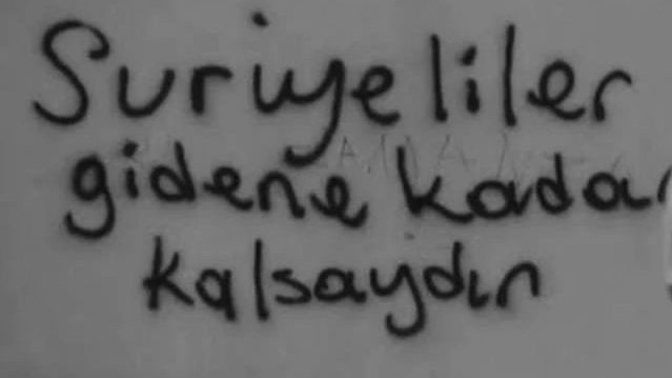 Suriyeliler
gidene kadar
kalsaydın